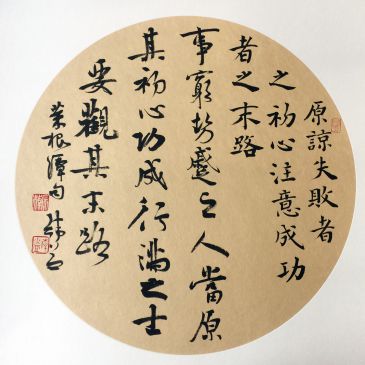 原諒失敗者
之初心注意成功
者之末路
事窮勢蹙之人當原
其初心功成行滿之士
要觀其末路
菜根譚句